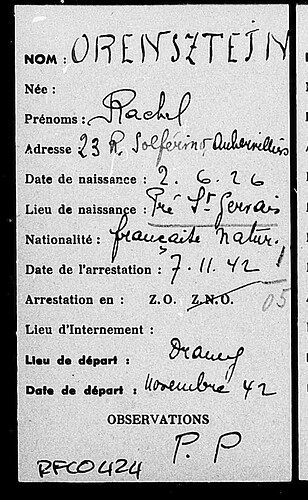 NOM : ORENSZTEJN
Née :
Prénoms : Rachel
Adresse 23 R. Solférino, Aubervilliers
Date de naissance : 2. 6. 26
Lieu de naissance : Pré St Gervais
Nationalité : française Natur.
Date de l'arrestation : 7. 11. 42
Arrestation en : Z.O. Z.N.O. 05
Lieu d'Internement :
Lieu de départ : Drancy
Date de départ : novembre 42
OBSERVATIONS
P. P
RFCO424